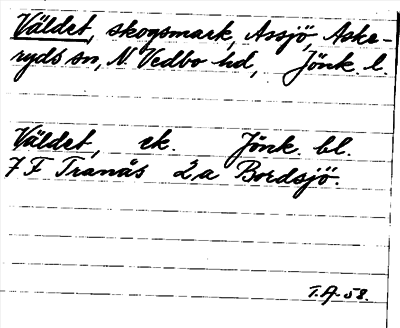 Väldet, skogsmark, Assjö, Aske-
ryds sn, N. Vedbo hd, Jönk. l.
Väldet, ek. Jönk. bl.
7 F Tranås 2,a Bordsjö.
T.A. 58.